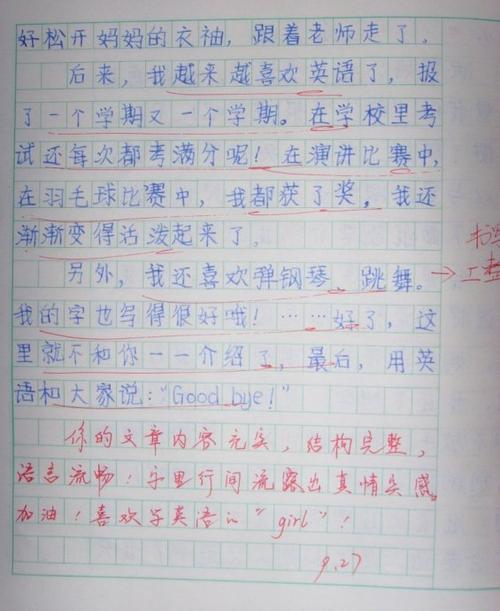 好松开妈妈的衣袖，跟着老师走了。
后来，我越来越喜欢英语了，报
了一个学期又一个学期。在学校里考
试还每次都考满分呢！在演讲比赛中，
在羽毛球比赛中，我都获了奖，我还
渐渐变得活泼起来了。
另外，我还喜欢弹钢琴、跳舞。
我的字也写得很好哦！……好了，这
里就不和你一一介绍了，最后，用英
语和大家说：“Good bye！”
书写
工整
你的文章内容充实，结构完整，
语言流畅！字里行间流露出真情实感。
加油！喜欢学英语的“girl”！
9.27